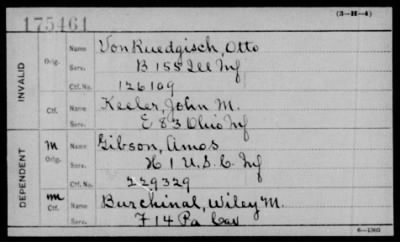 175461
(3-H-4)
INVALID
Orig. Name VonRuedgisch, Otto
Serv. B 155 Ill Inf
Ctf. No. 126109
Ctf. Name Keeler, John M.
Serv. E 83 Ohio Inf
DEPENDENT
m Orig. Name Gibson, Amos
Serv. H 1 U.S.C. Inf
Ctf. No. 229329
m Ctf. Name Burchinal, Wiley M.
Serv. F 14 Pa Cav